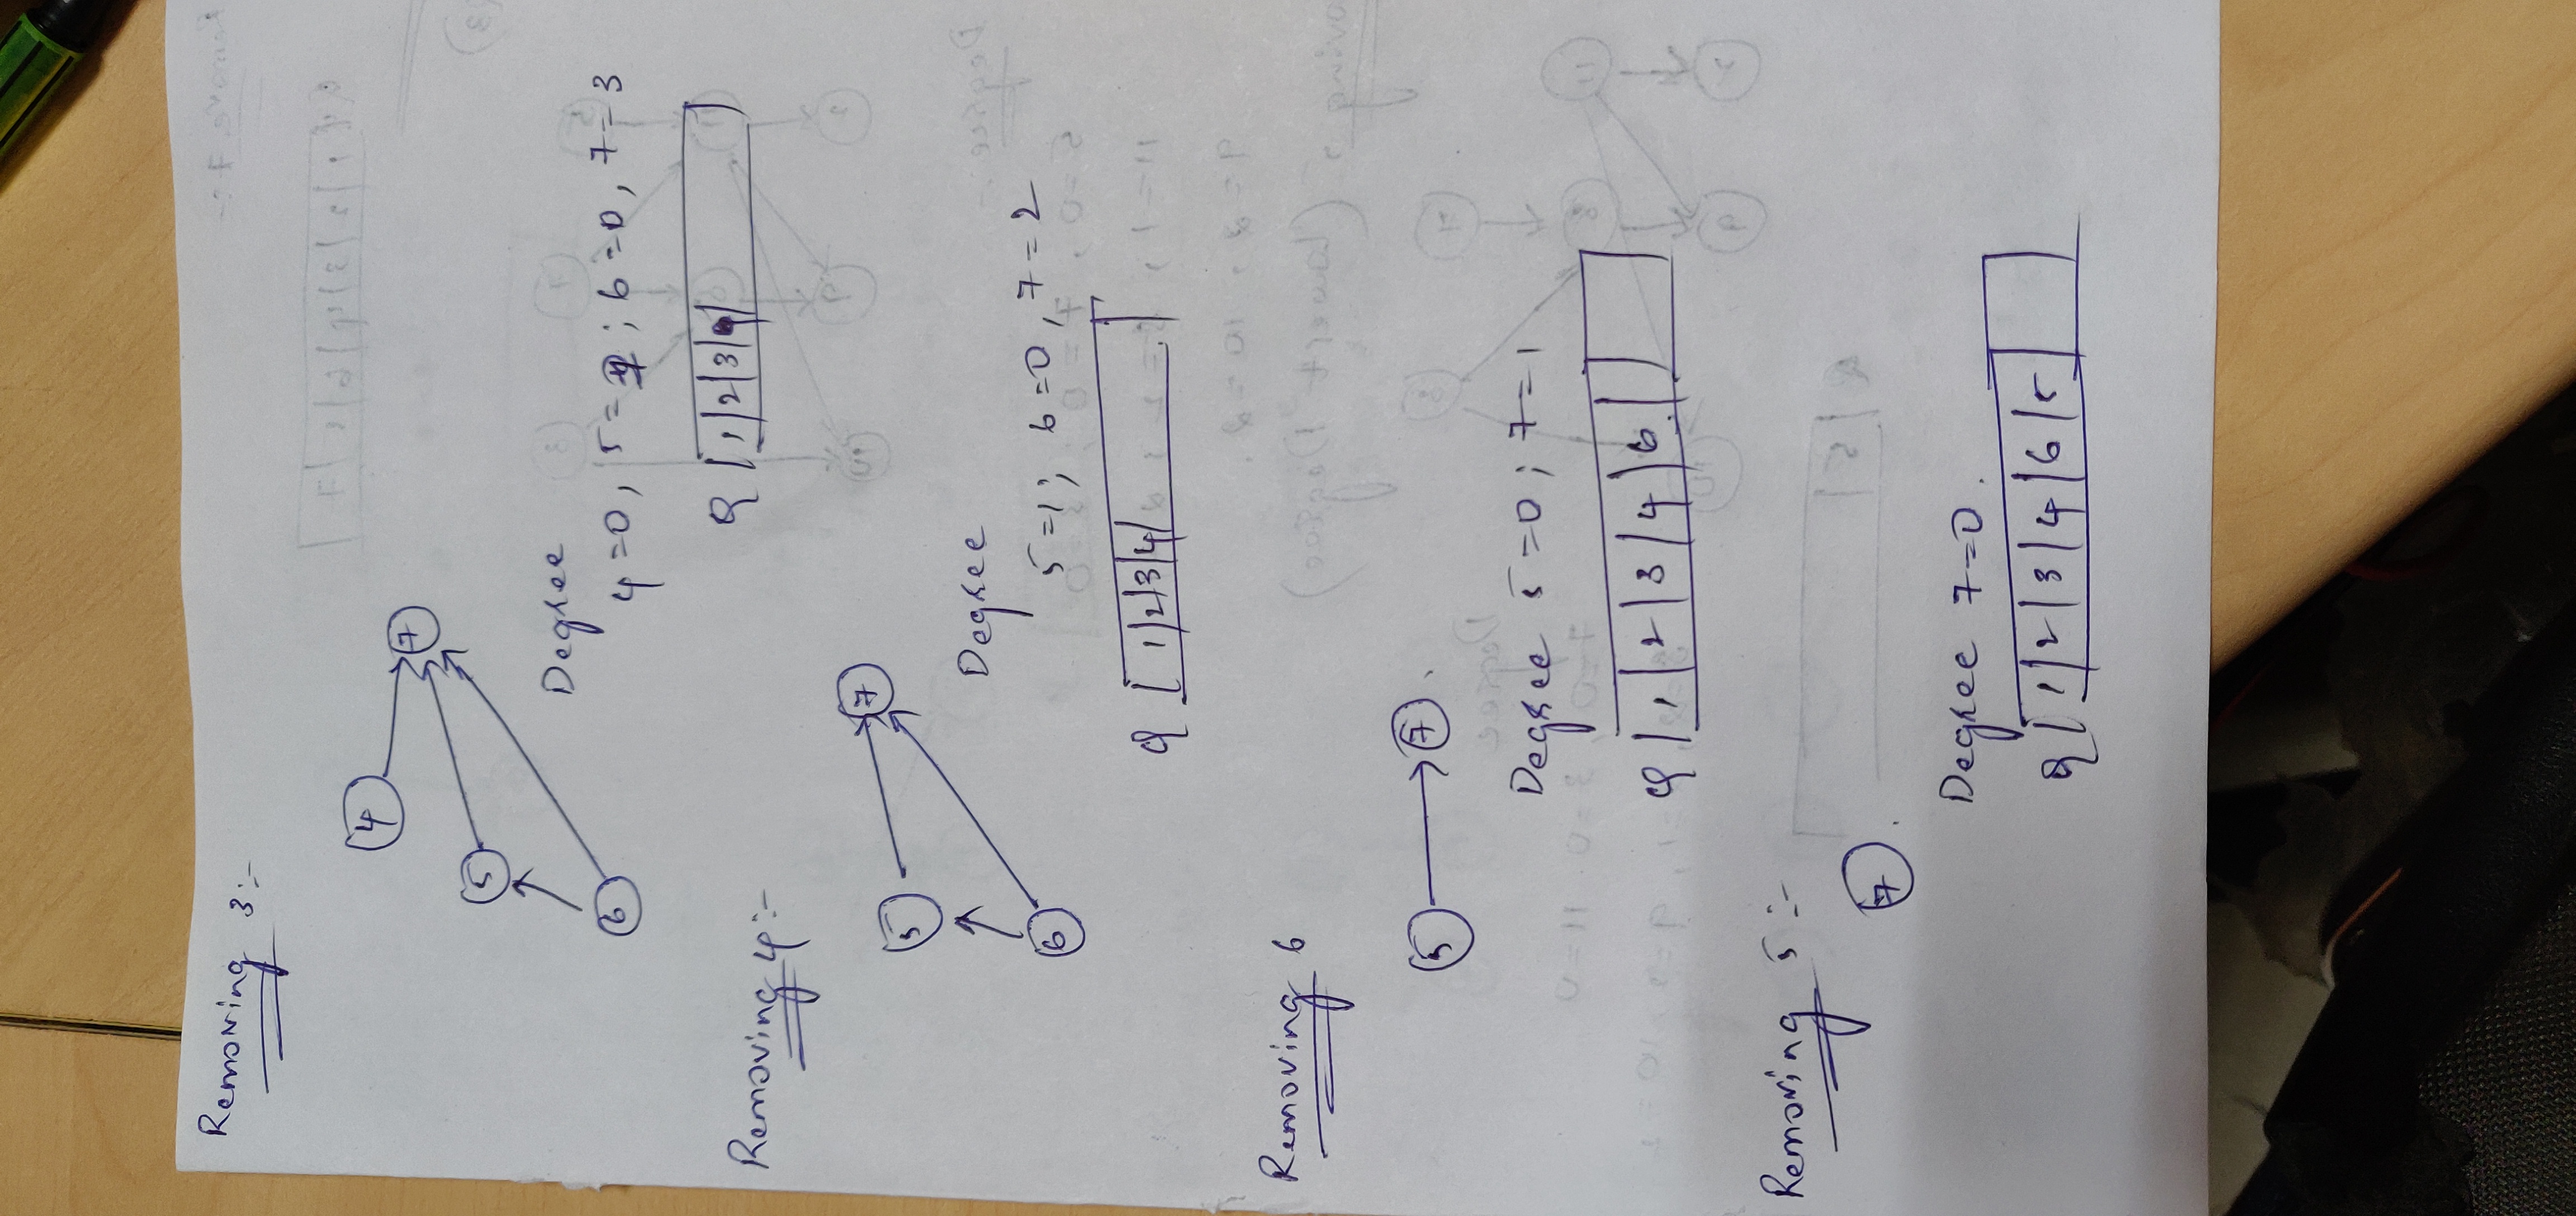 Removing 3:-
6 5 4 7
Degree
4=0, 5=1; 6=0, 7=3
Q | 1 | 2 | 3 |
Removing 4:-
6 5 7
Degree
5=1; 6=0, 7=2
Q | 1 | 2 | 3 | 4 |
Removing 6
5 7
Degree 5=0; 7=1
Q | 1 | 2 | 3 | 4 | 6 |
Removing 5:-
7
Degree 7=0.
Q | 1 | 2 | 3 | 4 | 6 | 5